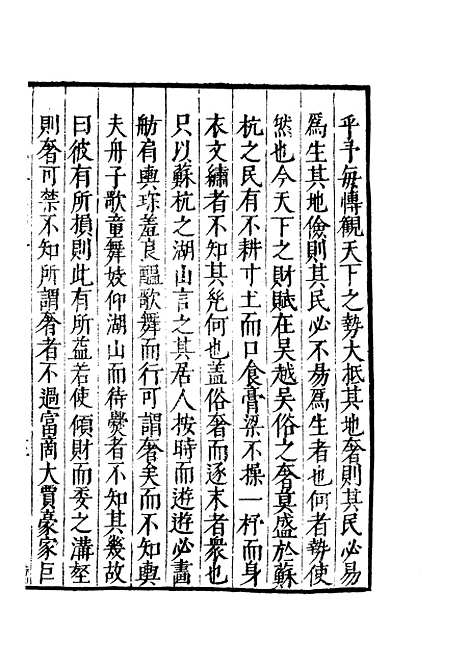 乎予每愽觀天下之勢大抵其地奢則其民必易
爲生其地儉則其民必不易爲生者也何者勢使
然也今天下之財賦在吳越吳俗之奢莫盛於蘇
杭之民有不耕寸土而口食膏粱不操一杼而身
衣文繡者不知其幾何也蓋俗奢而逐末者衆也
只以蘇杭之湖山言之其居人按時而遊遊必畵
舫肩輿珎羞良醞歌舞而行可謂奢矣而不知輿
夫舟子歌童舞妓仰湖山而待爨者不知其幾故
曰彼有所損則此有所益若使傾財而委之溝壑
則奢可禁不知所謂奢者不過富商大賈豪家巨